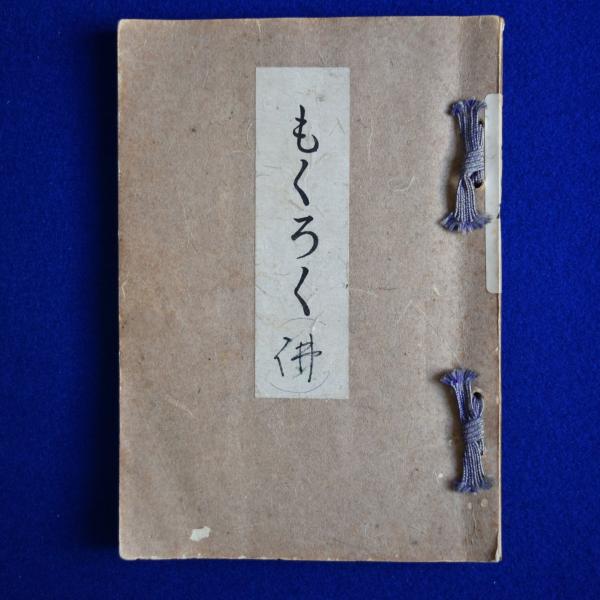 もくろく
佛